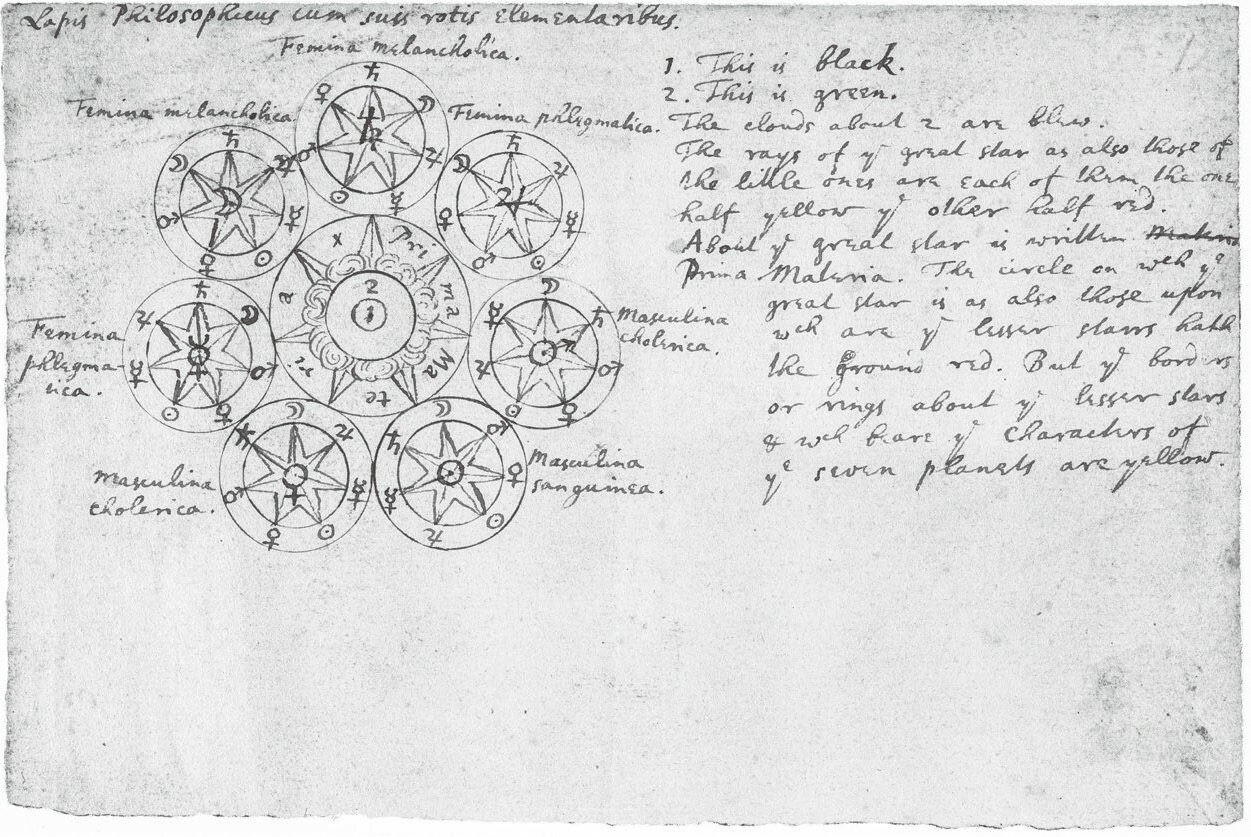 Lapis Philosophicus cum suis rotis elementaribus.
Femina melancholica.
Femina melancholica.
Femina phlegmatica.
Femina
phlegma-
tica.
Masculina
cholerica.
Masculina
cholerica.
Masculina
sanguinea.
Pri ma Ma te ri a x
2
1
♄ ☾ ♃ ☿ ☉ ♂ ♀
1. This is black.
2. This is green.
The clouds about 2 are blew.
The rays of yᵉ great star as also those of
the little ones are each of them the one
half yellow yᵉ other half red.
About yᵉ great star is written Materia
Prima Materia. The circle on wᶜʰ yᵉ
great star is as also those upon
wᶜʰ are yᵉ lesser starrs hath
the Ground red. But yᵉ borders
or rings about yᵉ lesser stars
& wᶜʰ beare yᵉ characters of
yᵉ seven planets are yellow.